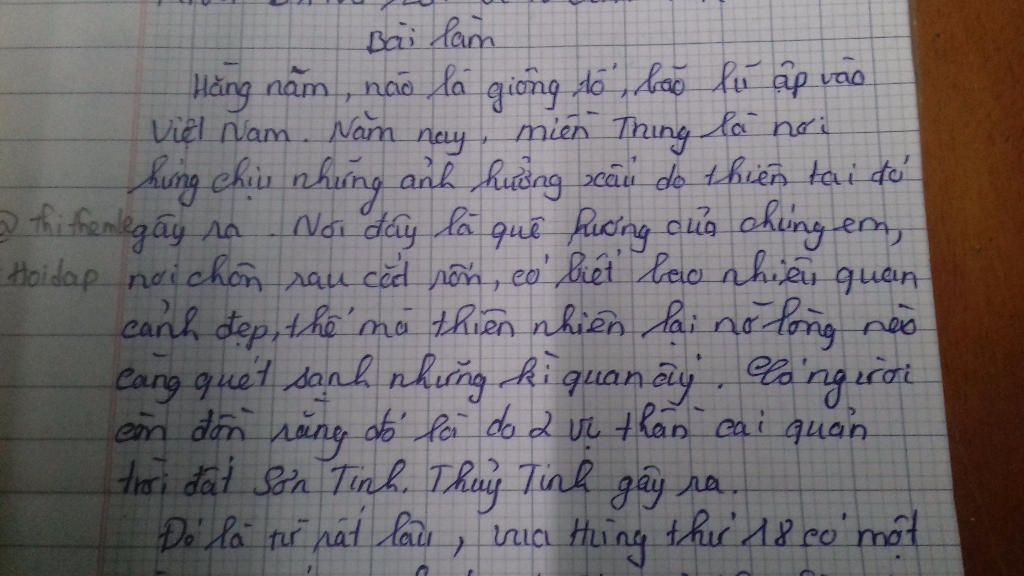 Bài làm
Hằng năm, nào là giông tố, bão lũ ập vào
Việt Nam. Năm nay, miền Trung là nơi
hứng chịu những ảnh hưởng xấu do thiên tai đó
gây ra. Nơi đây là quê hương của chúng em,
nơi chôn rau cắt rốn, có biết bao nhiêu quan
cảnh đẹp, thế mà thiên nhiên lại nỡ lòng nào
càng quét sạnh những kì quan ấy. Có người
còn đồn rằng đó là do 2 vị thần cai quản
trời đất Sơn Tinh, Thủy Tinh gây ra.
Đó là từ rất lâu, vua Hùng thứ 18 có một
@thithemle
Hoidap